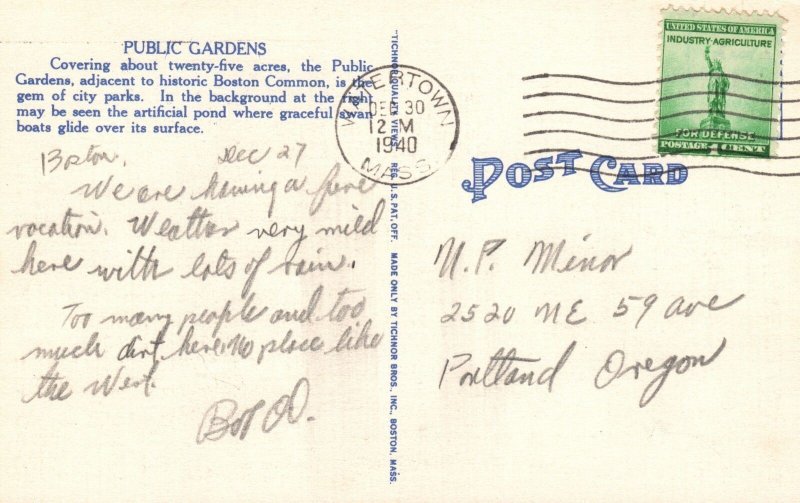 PUBLIC GARDENS
Covering about twenty-five acres, the Public
Gardens, adjacent to historic Boston Common, is the
gem of city parks. In the background at the right
may be seen the artificial pond where graceful swan
boats glide over its surface.
Boston, Dec 27
We are having a fine
vacation. Weather very mild
here with lots of rain.
Too many people and too
much dirt here. No place like
the West.
"TICHNOR QUALITY VIEWS" REG. U. S. PAT. OFF. MADE ONLY BY TICHNOR BROS., INC., BOSTON, MASS.
WATERTOWN
DEC 30
12 M
1940
MASS.
UNITED STATES OF AMERICA
INDUSTRY-AGRICULTURE
FOR DEFENSE
POSTAGE 1 CENT
POST CARD
N. P. Minor
2520 NE 59 ave
Portland Oregon